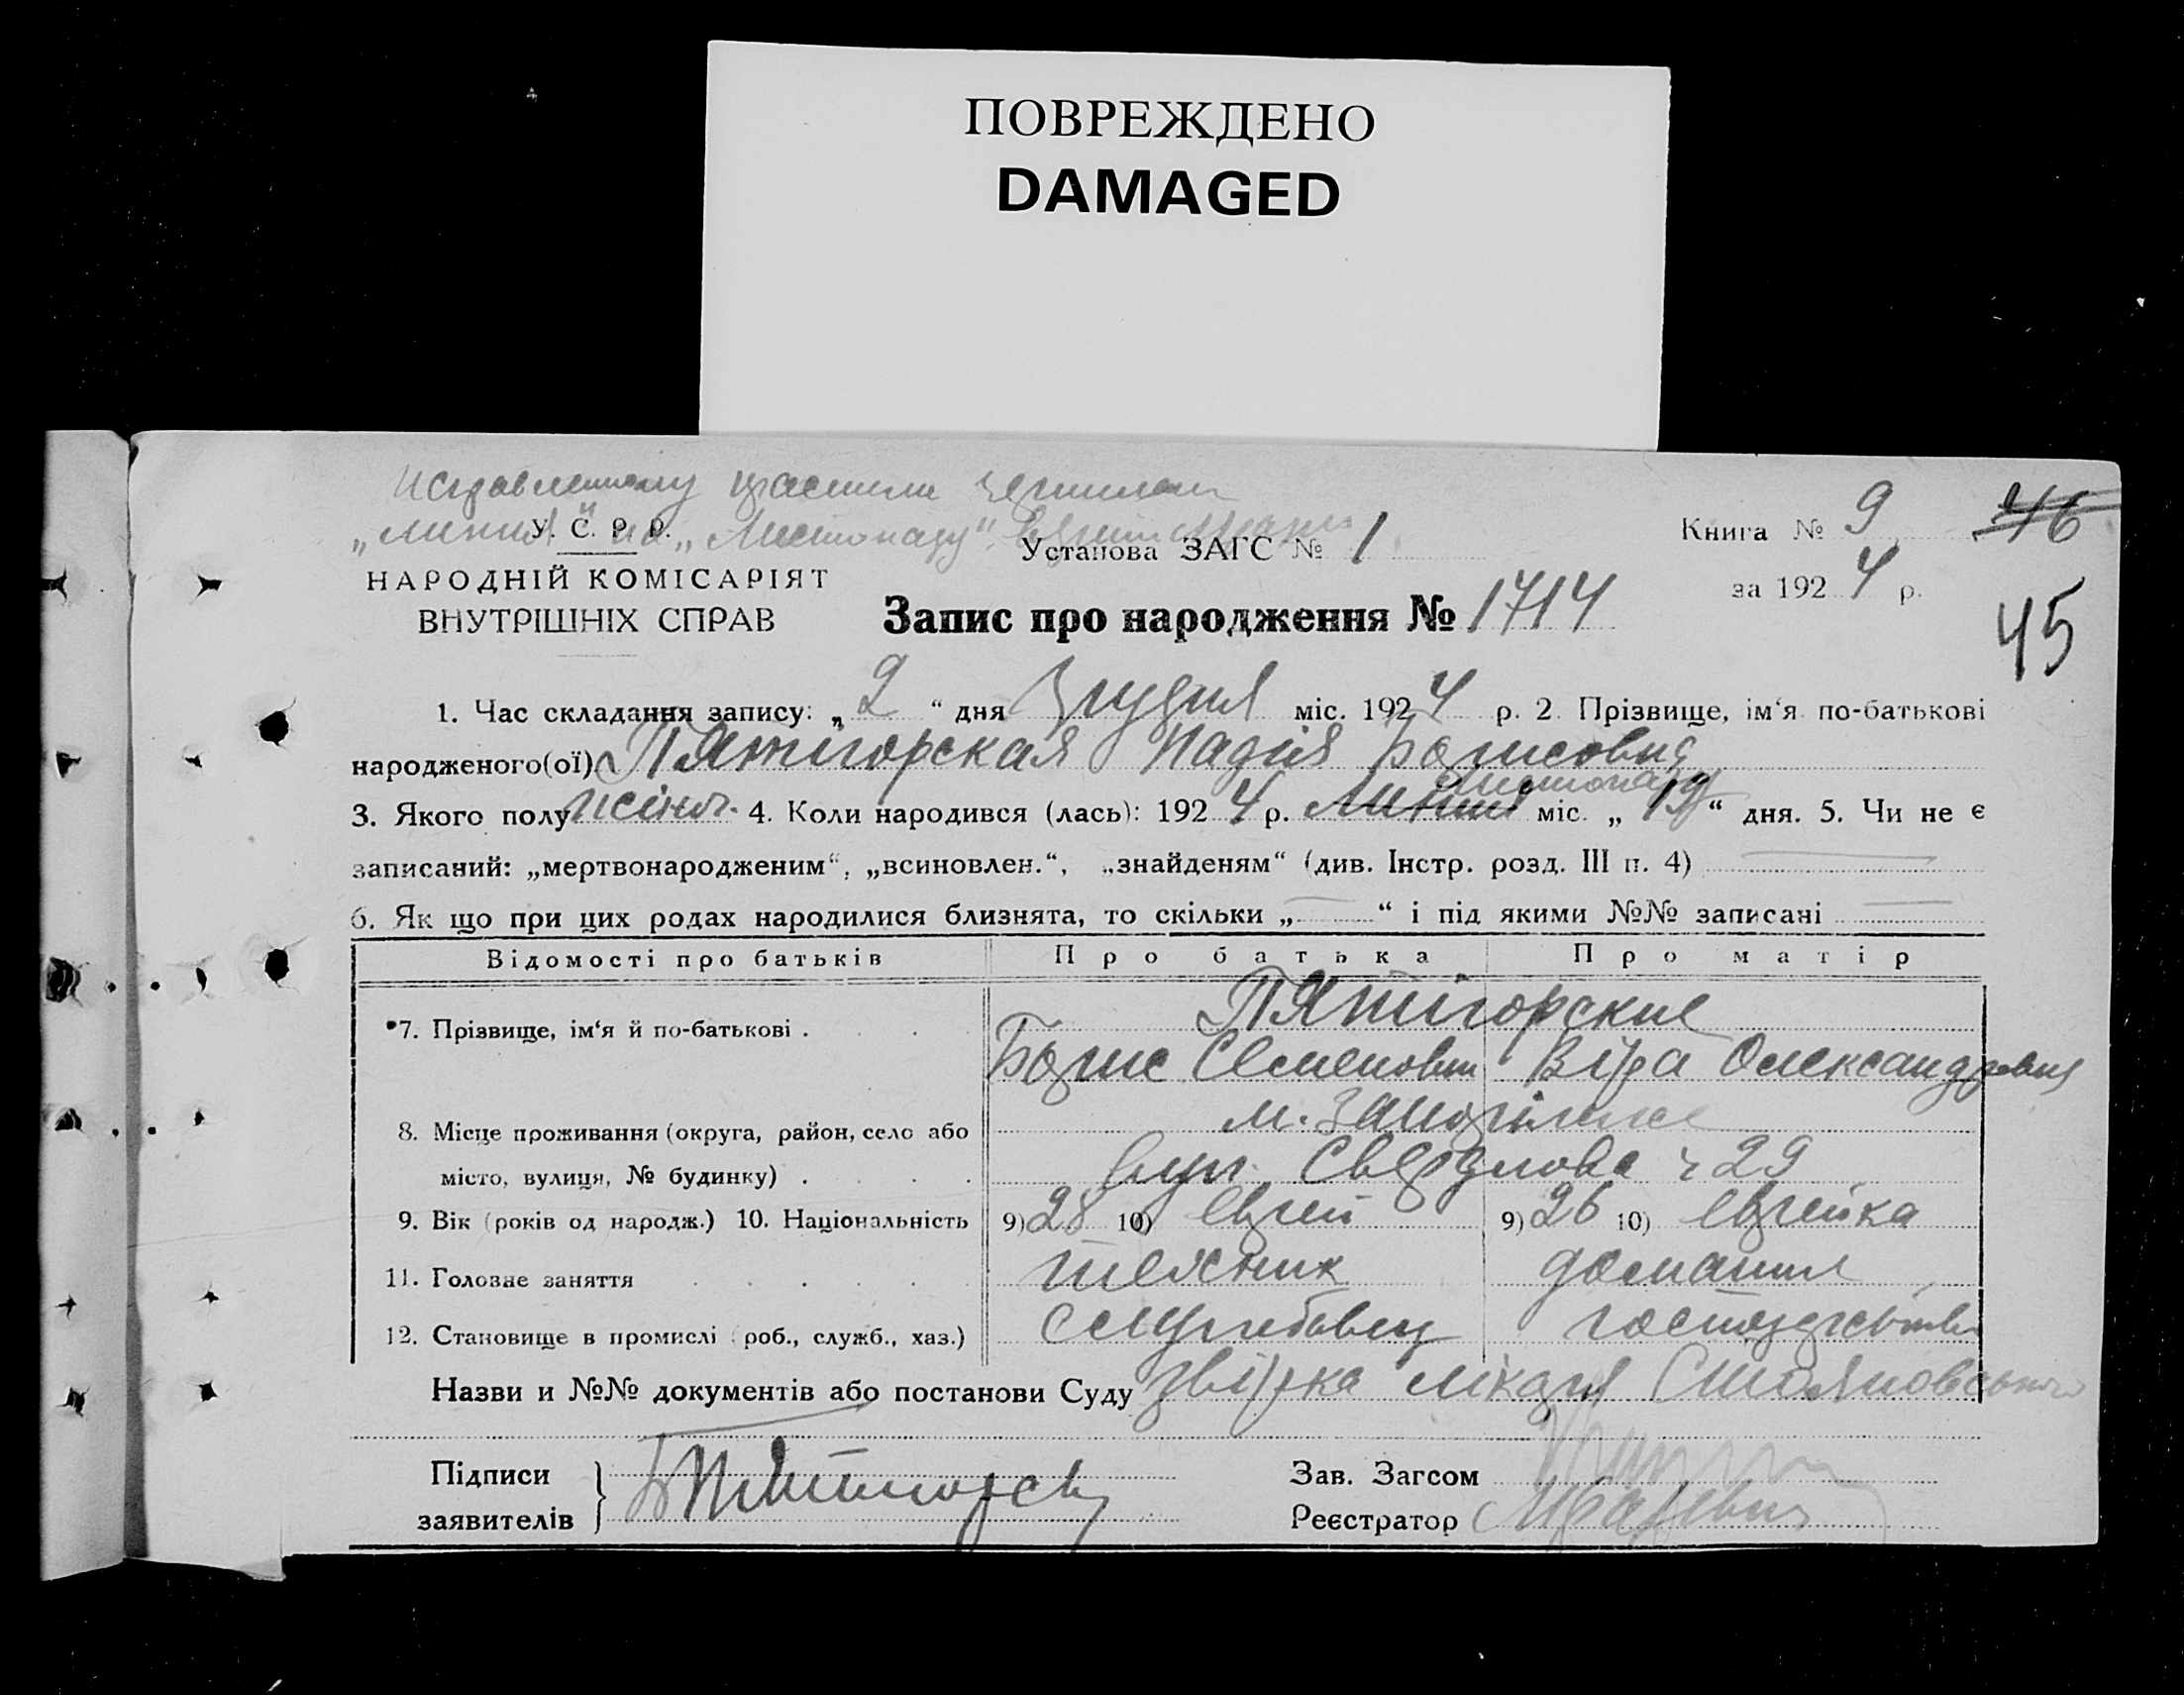 ПОВРЕЖДЕНО
DAMAGED
У. С. Р. Р.
„Листопаду“
Установа ЗАГС № 1
Книга № 9
46
НАРОДНІЙ КОМІСАРІЯТ
за 1924 р.
ВНУТРІШНІХ СПРАВ
Запис про народження № 1714
45
1. Час складання запису: „2“ дня Грудня міс. 1924 р. 2. Прізвище, ім‘я по-батькові
народженого(ої) Пятігорская Надія Борисовна
листопаду
3. Якого полу жіноч. 4. Коли народився (лась): 1924 р. Липня міс. „19“ дня. 5. Чи не є
записаний: „мертвонародженим“, „всиновлен.“, „знайденям“ (див. Інстр. розд. III п. 4)
6. Як що при цих родах народилися близнята, то скільки „ “ і під якими №№ записані
Відомості про батьків Про батька Про матір
7. Прізвище, ім‘я й по-батькові . Пятігорские
Борис Семенович Віра Олександровна
8. Місце проживання (округа, район, село або м. Запоріжже
місто, вулиця, № будинку) . вул. Свердлова ч 29
9. Вік (років од народж.) 10. Національність 9) 28 10) Еврей 9) 26 10) Еврейка
11. Головне заняття технік домашнє
12. Становище в промислі (роб., служб., хаз.) господарство
Назви и №№ документів або постанови Суду звірка лікаря Стояновського
Підписи
заявителів
Зав. Загсом
Реєстратор